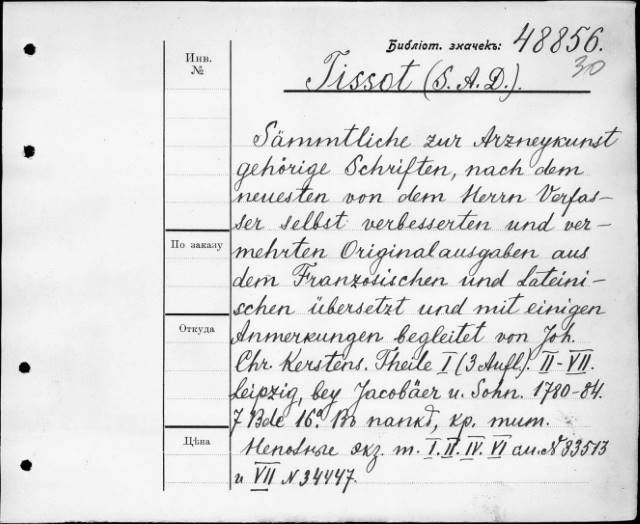 Библіот. значекъ: 48856.
30
Инв.
№
Tissot (S. A. D.).
Sämmtliche zur Arzneykunst
gehörige Schriften, nach dem
neuesten von dem Herrn Verfas-
ser selbst verbesserten und ver-
По заказу
mehrten Originalausgaben aus
dem Französischen und Lateini-
schen übersetzt und mit einigen
Откуда
Anmerkungen begleitet von Joh.
Chr. Kerstens. Theile I (3 Aufl.). II-VII.
Leipzig, bey Jacobäer u. Sohn. 1780-84.
7 Bde 16°. Во папкѣ, кр. тит.
Цѣна
Неполные экз. т. I. II. IV. VI ал. N 83513
и VII N 34447.